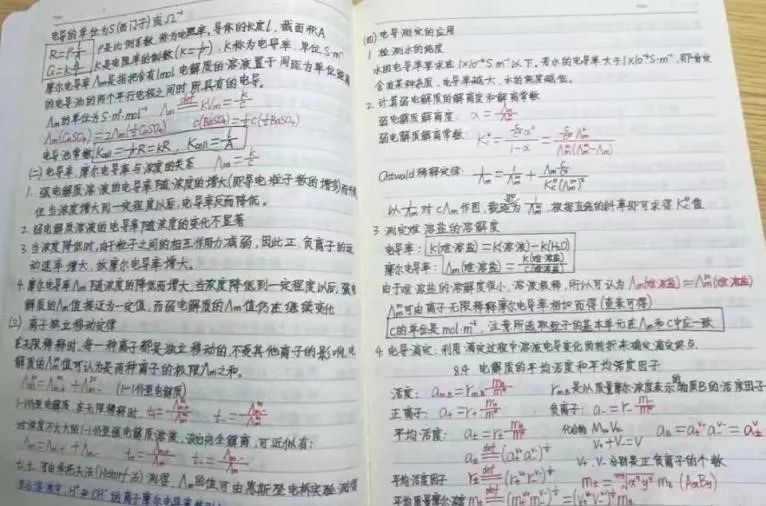 电导的单位为S(西门子)或Ω⁻¹
R=ρ l/A ρ是比例系数,称为电阻率,导体的长度l,截面积A
G=κ A/l κ是电阻率的倒数(κ=1/ρ),κ称为电导率,单位S·m⁻¹
摩尔电导率Λm是指把含有1mol电解质的溶液置于间距为单位距离
的电导池的两个平行电极之间时所具有的电导。
Λm的单位为S·m²·mol⁻¹ Λm def κVm=κ/c
Λm(CuSO₄)=2Λm(½CuSO₄) c(BaSO₄)=½c(½BaSO₄)
电池常数 Kcell=1/ρ R=κR, Kcell=l/A
(二)电导率、摩尔电导率与浓度的关系 Λm=κ/c
1. 强电解质溶液的电导率随浓度的增大(即导电粒子数的增多)而升高
但当浓度增大到一定程度以后,电导率反而降低。
2. 弱电解质溶液的电导率随浓度的变化不显著
3. 当浓度降低时,由于粒子之间的相互作用力减弱,因此正、负离子的运
动速率增大,故摩尔电导率增大。
4. 摩尔电导率Λm随浓度的降低而增大,当浓度降低到一定程度以后,强电
解质的Λm值接近为一定值,而弱电解质的Λm值仍在继续变化
(三)离子独立移动定律
在无限稀释时,每一种离子都是独立移动的,不受其他离子的影响,电
解质的Λm^∞值可认为是两种离子的极限Λm之和。
Λm^∞=Λm,+^∞+Λm,-^∞ (1-1价型电解质)
1-1价型电解质,在无限稀释时 t₊=Λm,+^∞/Λm^∞ t₋=Λm,-^∞/Λm^∞
对浓度不太大的1-1价型强电解质溶液,设它的全解离,可近似有:
Λm=Λm,+ + Λm,- t₊=Λm,+/Λm t₋=Λm,-/Λm
t₊,t₋可由希托夫法(Hittorf法)测得,Λm的值可由惠斯登电桥实验测得
H⁺和OH⁻的离子摩尔电导率
(四)电导测定的应用
1. 检测水的纯度
水的电导率要求在1×10⁻⁴S·m⁻¹以下。若水的电导率大于1×10⁻⁴S·m⁻¹,那肯定
含有某种杂质,电导率越大,水的纯度越低。
2. 计算弱电解质的解离度和解离常数
弱电解质解离度: α=Λm/Λm^∞
弱电解质解离常数: Kc^⊖=(c/c^⊖ α²)/(1-α)=(c/c^⊖ Λm²)/(Λm^∞(Λm^∞-Λm))
Ostwald稀释定律: 1/Λm=1/Λm^∞+(Λm c/c^⊖)/(Kc^⊖(Λm^∞)²)
以1/Λm对cΛm作图,截距为1/Λm^∞,根据直线的斜率即可求得Kc^⊖值
3. 测定难溶盐的溶解度
电导率: κ(难溶盐)=κ(溶液)-κ(H₂O)
摩尔电导率: Λm(难溶盐)=κ(难溶盐)/c(难溶盐)
由于难溶盐的溶解度很小,溶液极稀,所以可认为Λm(难溶盐)≈Λm^∞(难溶盐)
Λm^∞可由离子无限稀释摩尔电导率相加而得(查表可得)
c的单位是mol·m⁻³,注意所选取粒子的基本单元在Λm和c中应一致
4. 电导滴定: 利用滴定过程中溶液电导变化的转折来确定滴定终点
8.4 电解质的平均活度和平均活度因子
活度: a m,B=γ m,B mB/m^⊖ γ m,B是以质量摩尔浓度表示的物质B的活度因子
正离子: a₊=γ₊ m₊/m^⊖ 负离子: a₋=γ₋ m₋/m^⊖
平均活度: a±=γ± m±/m^⊖ 化合物 aB=a₊^ν₊ a₋^ν₋=a±^ν
ν₊+ν₋=ν
a± def (a₊^ν₊ a₋^ν₋)^1/ν ν₊,ν₋分别是正负离子的个数
平均活度因子 γ± def (γ₊^ν₊ γ₋^ν₋)^1/ν
平均质量摩尔浓度 m± def (m₊^ν₊ m₋^ν₋)^1/ν=(ν₊^ν₊ ν₋^ν₋)^1/ν mB